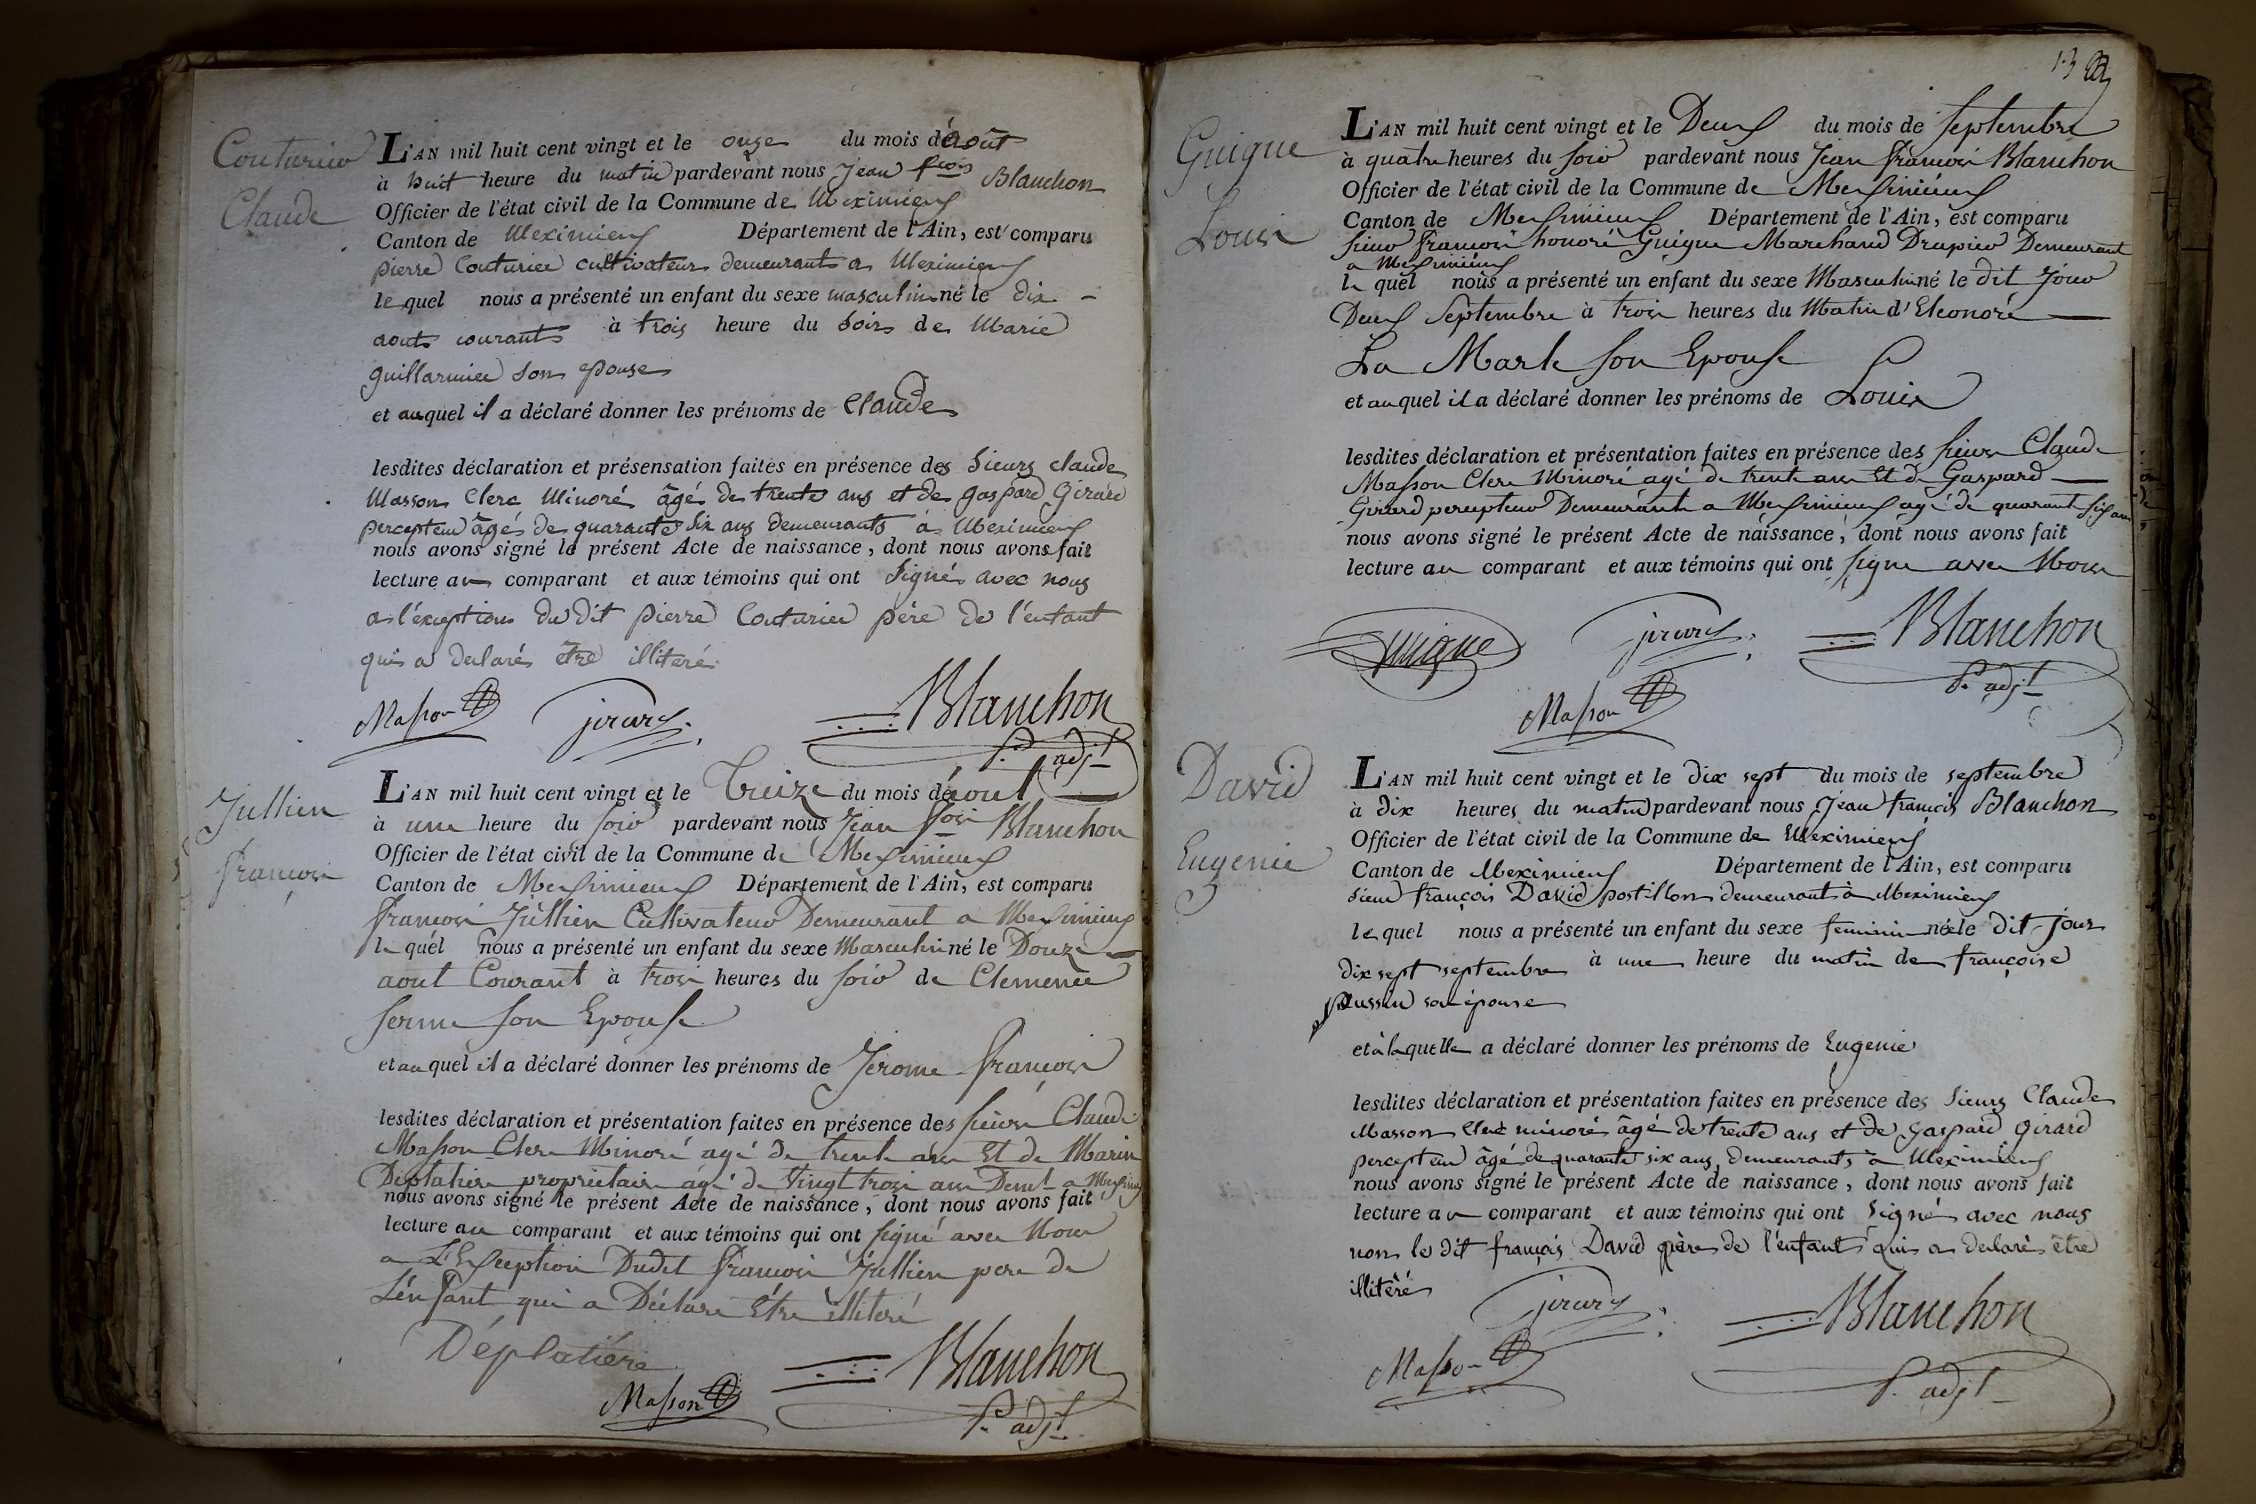 Couturier
Claude
L'AN mil huit cent vingt et le onze du mois d'août
à huit heure du matin pardevant nous Jean fcois Blanchon
Officier de l'état civil de la Commune de Meximieux
Canton de Meximieux Département de l'Ain, est comparu
pierre Couturier cultivateur demeurant a Meximieux
le quel nous a présenté un enfant du sexe masculin né le dix -
aout courant à trois heure du soir de Marie
guillarmier son epouse
et auquel il a déclaré donner les prénoms de Claude
lesdites déclaration et présensation faites en présence des Sieurs claude
Masson Clerc Minoré âgé de trente ans et de gaspard Girard
percepteur âgé de quarante six ans demeurants à Meximieux
nous avons signé le présent Acte de naissance, dont nous avons fait
lecture au comparant et aux témoins qui ont Signés avec nous
a l'éxception du dit pierre Couturier père de l'enfant
qui a declaré être illiteré
Masson girard Blanchon
P. adjt
Jullien
françois
L'AN mil huit cent vingt et le Treize du mois d'aout
à une heure du soir pardevant nous Jean fcois Blanchon
Officier de l'état civil de la Commune de Meximieux
Canton de Meximieux Département de l'Ain, est comparu
françois Jullien Cultivateur Demeurant a Meximieux
le quel nous a présenté un enfant du sexe Masculin né le Douze
aout Courant à trois heures du soir de Clemence
ferme son Epouse
et auquel il a déclaré donner les prénoms de Jérome françois
lesdites déclaration et présentation faites en présence des sieurs Claude
Masson Clerc Minoré agé de trente ans Et de Marin
Déplatière propriétaire agé de Vingt trois ans Demt a Meximieux
nous avons signé le présent Acte de naissance, dont nous avons fait
lecture au comparant et aux témoins qui ont signé avec Nous
a L'Exception Dudit françois Jullien pere de
L'énfant qui a Déclaré Etre illiteré
Déplatière
Masson Blanchon
P. adjt
13
Guigue
Louis
L'AN mil huit cent vingt et le Deux du mois de septembre
à quatre heures du soir pardevant nous Jean françois Blanchon
Officier de l'état civil de la Commune de Meximieux
Canton de Meximieux Département de l'Ain, est comparu
sieur françois honoré Guigue Marchand Drapier Demeurant
a Meximieux
le quel nous a présenté un enfant du sexe Masculin né le dit Jour
Deux Septembre à trois heures du Matin d'Eleonore
La Marle son Epouse
et auquel il a déclaré donner les prénoms de Louis
lesdites déclaration et présentation faites en présence des sieurs Claude
Masson Clerc Minoré agé de trente ans Et de Gaspard
Girard percepteur Demeurant a Meximieux agé de quarante six ans
nous avons signé le présent Acte de naissance, dont nous avons fait
lecture au comparant et aux témoins qui ont signe avec Nous
Guigue girard Blanchon
P. adjt
Masson
David
Eugenie
L'AN mil huit cent vingt et le dix sept du mois de septembre
à dix heures du matin pardevant nous Jean françois Blanchon
Officier de l'état civil de la Commune de Meximieux
Canton de Meximieux Département de l'Ain, est comparu
sieur françois David postillon demeurant à Meximieux
le quel nous a présenté un enfant du sexe feminin née le dit jour
dix sept septembre à une heure du matin de françoise
son épouse
et à laquelle a déclaré donner les prénoms de Eugenie
lesdites déclaration et présentation faites en présence des Sieurs Claude
Masson Clerc minoré âgé de trente ans et de gaspard girard
percepteur âgé de quarante six ans demeurants à Meximieux
nous avons signé le présent Acte de naissance, dont nous avons fait
lecture au comparant et aux témoins qui ont Signés avec nous
non le dit françois David père de l'enfant qui a declaré être
illitéré
girard Blanchon
Masson P. adjt